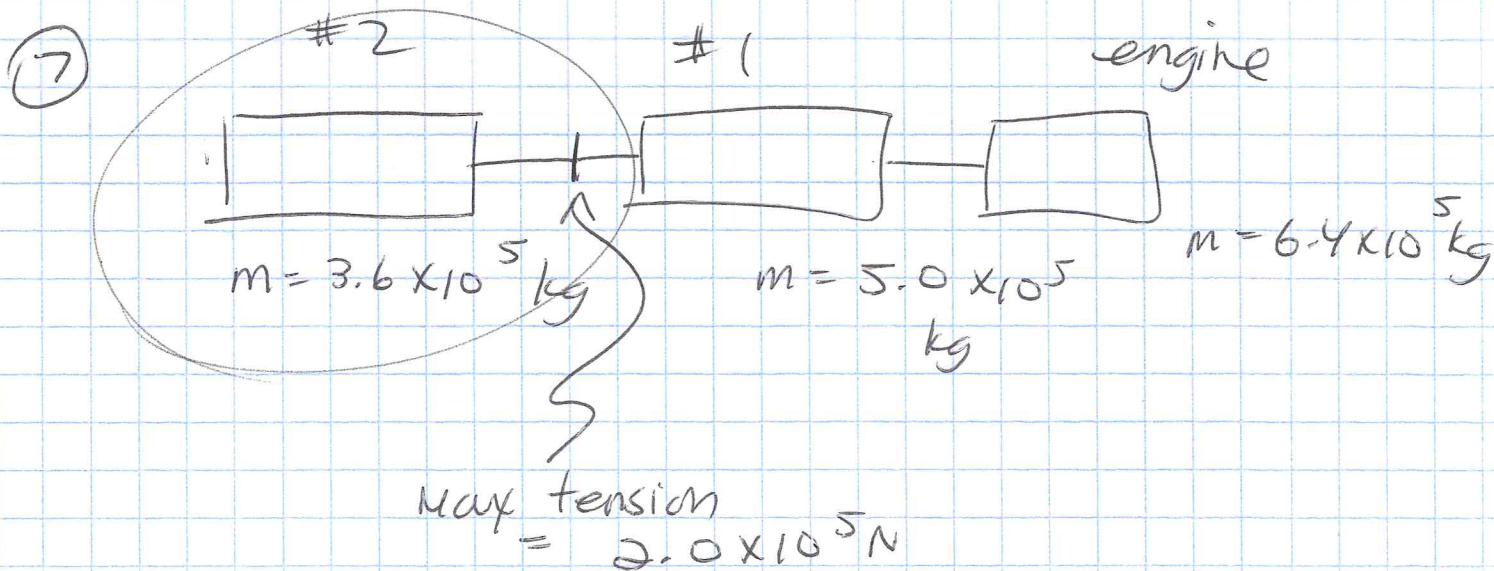 7
#2 #1 engine
m = 3.6 x 10^5 kg
m = 5.0 x 10^5
kg
m = 6.4 x 10^5 kg
Max tension
= 2.0 x 10^5 N